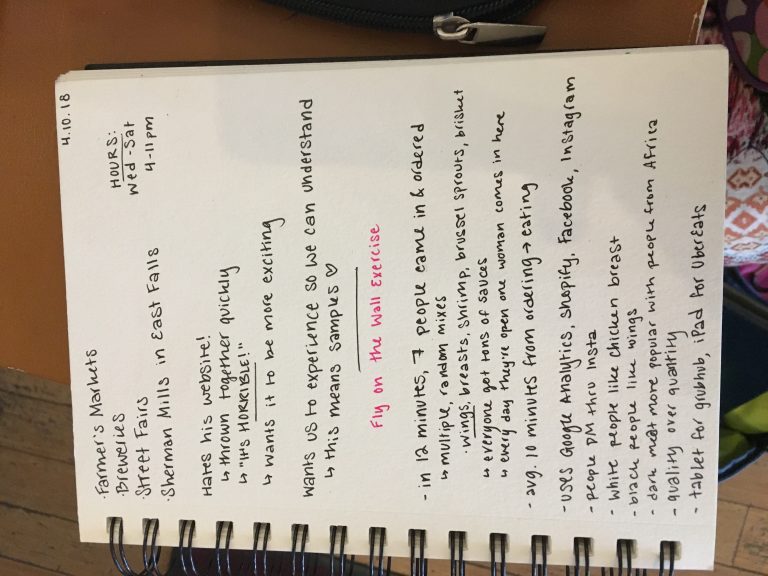 4.10.18
· Farmer's Markets
· Breweries
· Street Fairs
· Sherman Mills in East Falls
HOURS:
Wed - Sat
4-11pm
Hates his website!
↳ thrown together quickly
↳ "It's HORRIBLE!"
↳ wants it to be more exciting
Wants us to experience so we can understand
↳ this means samples ♡
Fly on the Wall Exercise
- in 12 minutes, 7 people came in & ordered
↳ multiple, random mixes
· wings, breasts, shrimp, brussel sprouts, brisket
↳ everyone got tons of sauces
↳ every day they're open one woman comes in here
- avg. 10 minutes from ordering → eating
- uses Google Analytics, Shopify, Facebook, Instagram
- people DM thru Insta
- white people like chicken breast
- black people like wings
- dark meat more popular with people from Africa
- quality over quantity
- tablet for grubhub, iPad for UberEats